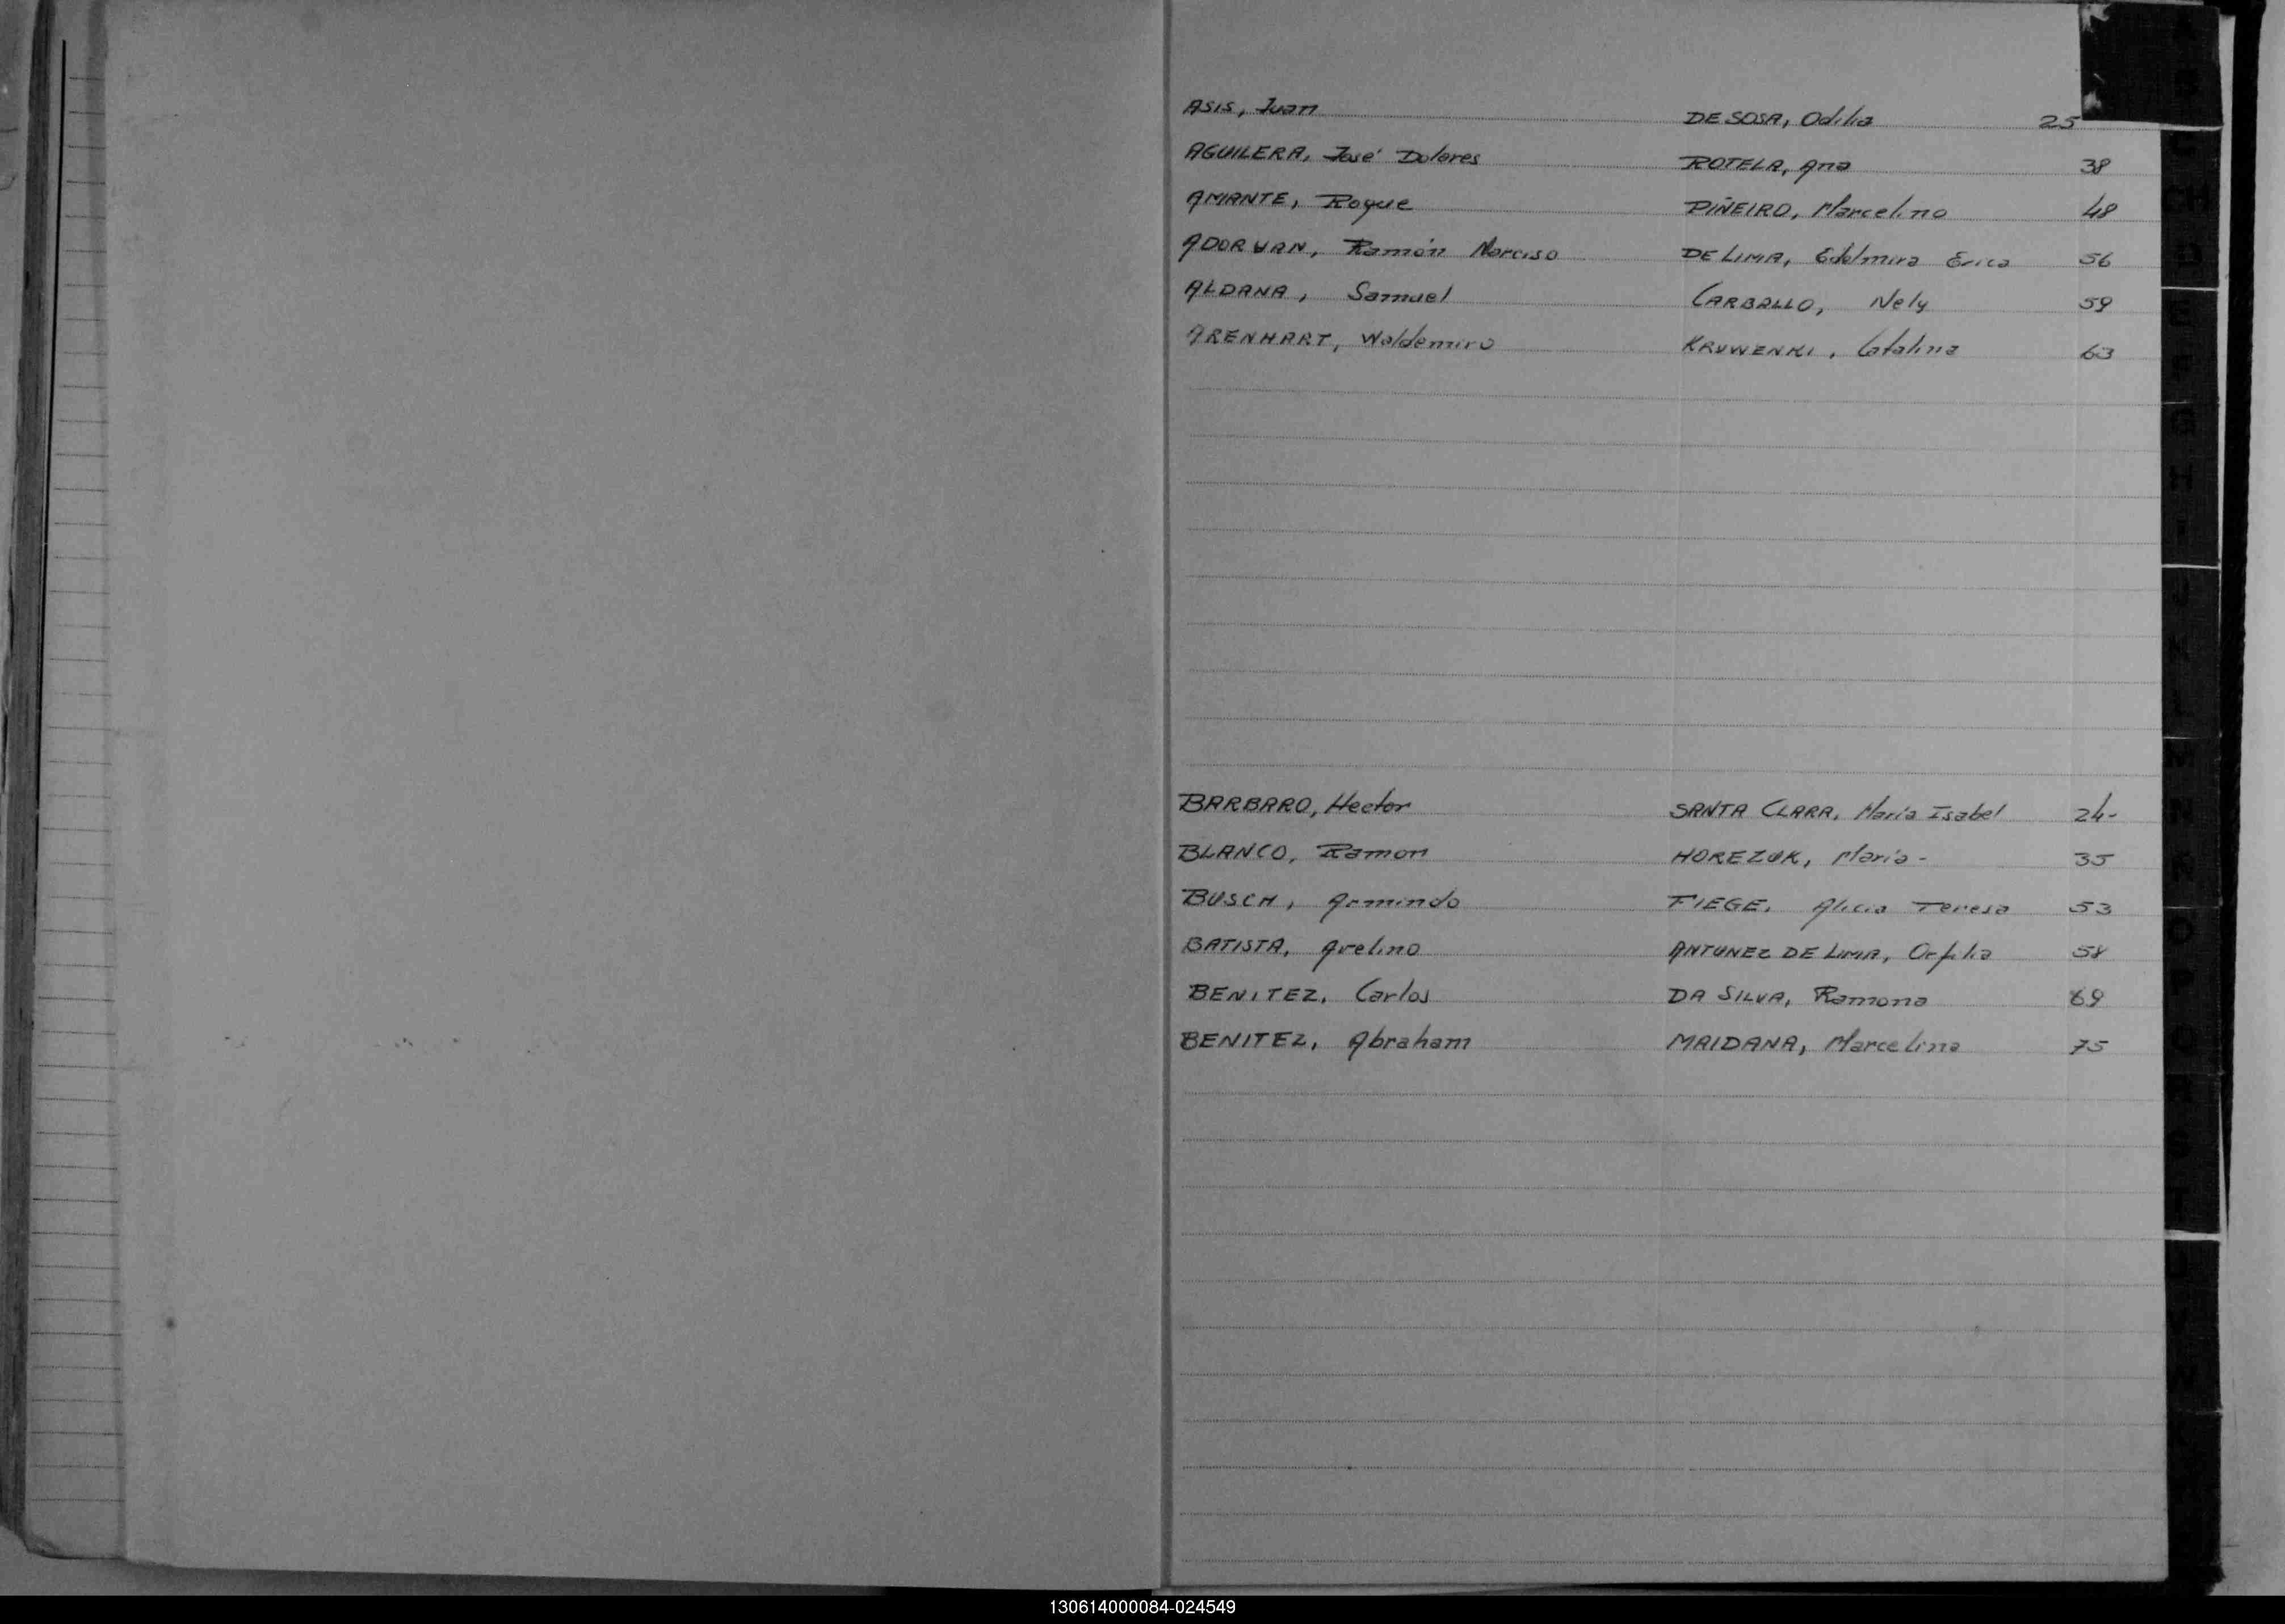 ASIS, Juan DE SOSA, Odilia 25
AGUILERA, José Dolores ROTELA, Ana 38
AMANTE, Roque PIÑEIRO, Marcelino 48
ADORYAN, Ramón Narciso DE LIMA, Edelmira Erica 56
ALDANA, Samuel CARBALLO, Nely 59
ARENHART, Waldemiro Catalina 63
BARBARO, Hector SANTA CLARA, María Isabel 24-
BLANCO, Ramon HOREZUK, María - 35
BUSCH, Armindo FIEGE, Alicia Teresa 53
BATISTA, Avelino ANTUNEZ DE LIMA, Orfilia 58
BENITEZ, Carlos DA SILVA, Ramona 69
BENITEZ, Abraham MAIDANA, Marcelina 75
130614000084-024549